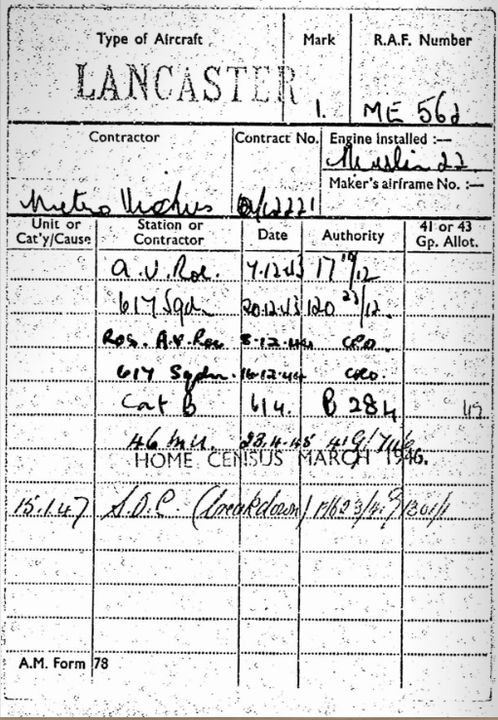 Type of Aircraft Mark R.A.F. Number
LANCASTER 1. ME 562
Contractor Contract No. Engine installed :—
Merlin 22
Maker's airframe No. :—
Metro Vickers
Unit or Cat'y/Cause Station or Contractor Date Authority 41 or 43 Gp. Allot.
A.V. Roe. 7.12.43 17 /12
617 Sqdn. 20.12.43 120 /12.
Ros. A.V. Roe 8.12.44 CRO.
617 Sqdn. 16.12.44 CRO.
Cat B 6/4. B 284
46 M.U. 23.4.45
HOME CENSUS MARCH 1946.
15.1.47 S.O.C. (breakdown)
A.M. Form 78